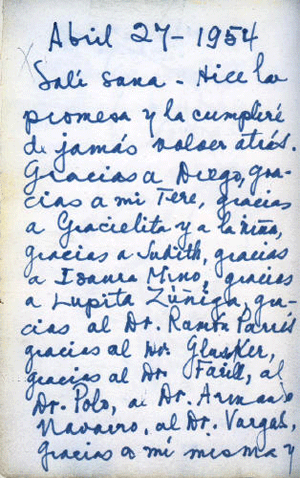 Abril 27-1954
Salí sana - Hice la
promesa y la cumpliré
de jamás volver atrás.
Gracias a Diego, gra-
cias a mi Tere, gracias
a Gracielita y a la niña,
gracias a Judith, gracias
a Isaura Mino, gracias
a Lupita Zúñiga, gra-
cias al Dr. Ramón Parrés
gracias al Dr. Glusker,
gracias al Dr. Farill, al
Dr. Polo, al Dr. Armando
Navarro, al Dr. Vargas,
gracias a mí misma y